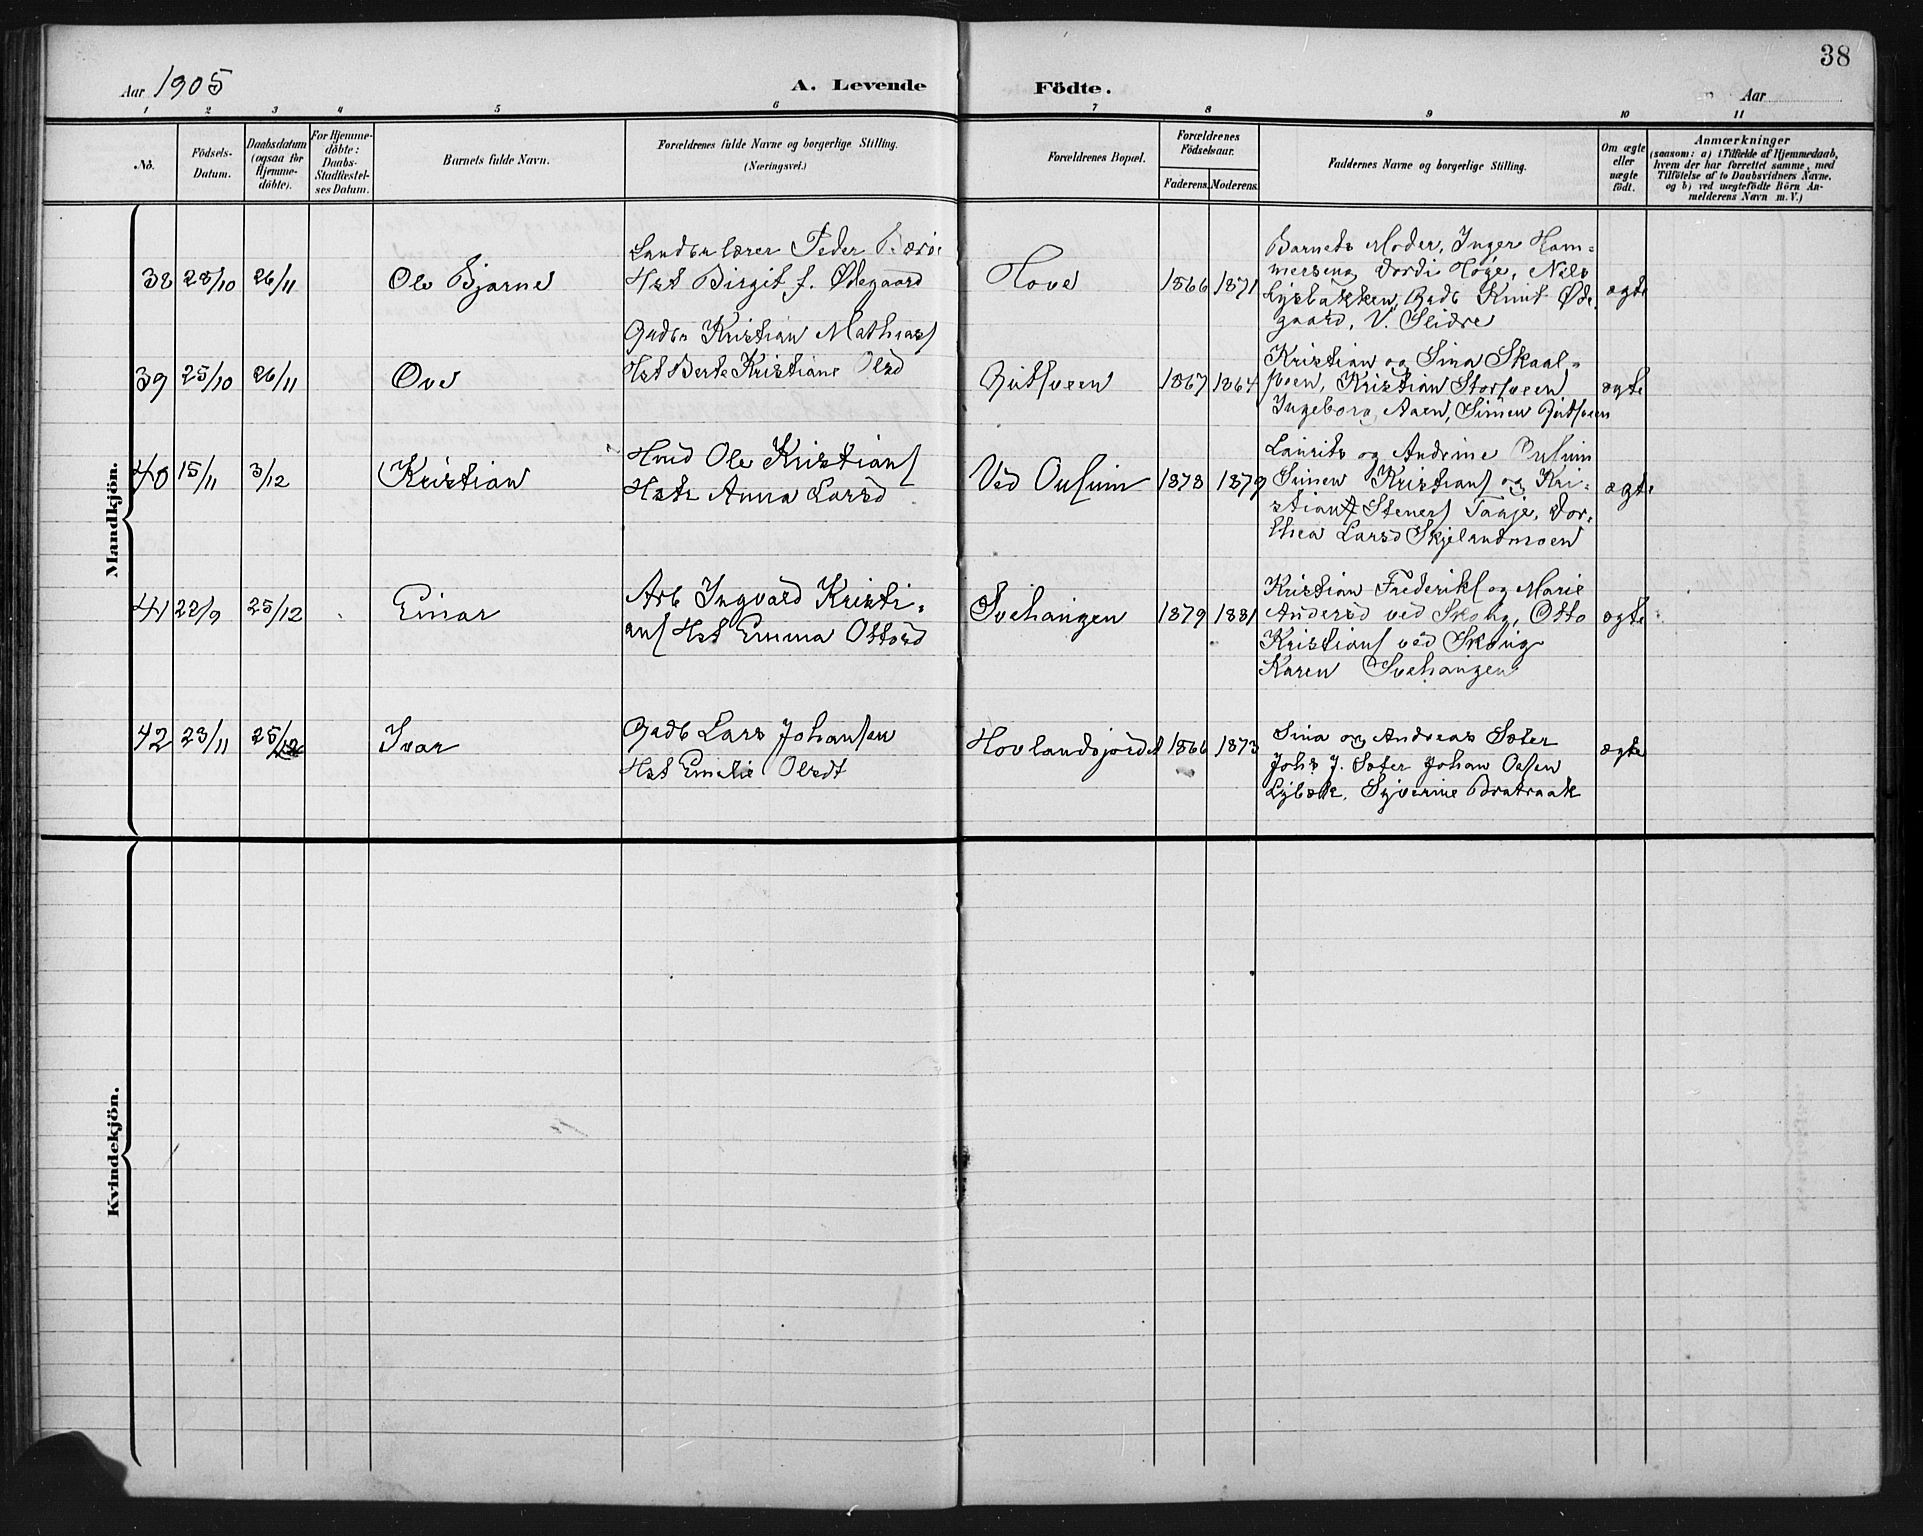 38
Aar 1905
A. Levende Födte.
Aar
1 2 3 4 5 6 7 8 9 10 11
No.
Födsels-
Datum.
Daabsdatum
(ogsaa for
Hjemme-
döbte).
For Hjemme-
döbte:
Daabs-
Stadfæstel-
ses Datum.
Barnets fulde Navn.
Forældrenes fulde Navne og borgerlige Stilling.
(Næringsvei.)
Forældrenes Bopæl.
Forældrenes
Födselsaar.
Faderens. Moderens.
Faddernes Navne og borgerlige Stilling.
Om ægte
eller
uægte
födt.
Anmærkninger
(saasom: a) i Tilfælde af Hjemmedaab,
hvem der har forrettet samme, med
Tilföielse af to Daabsvidners Navne,
og b) ved uægtefödte Börn An-
melderens Navn m. V.)
Mandkjön.
38 23/10 26/11
Ole Bjarne
lærer Peder
Hst Birgit f. Ødegaard
Hove
1866 1871
Barnets Moder, Inger Ham-
merseng, Dordi Høge, Nils
Lysbakken, Gadb Knut Øde
gaard, V. Slidre
ægte
39 25/10 26/11
Ove
Gadbr Kristian Mathias
Hst Berte Kristiane Olsd
1867 1864
Kristian og Sina Skaal-
sveen, Kristian Storsveen
Ingeborg Aaen, Simen
ægte
40 15/11 3/12
Kristian
Hmd Ole Kristians
Hstr Anna Larsd
Ved Oulium
1873 1879
Laurits og Andrine
Simen Kristians og Kri-
stian Steners Taaje, Dor-
thea Larsd Skjelandmoen
ægte
41 22/9 25/12
Einar
Arb Ingvald Kristi-
ans Hst Emma Ottosd
Svehaugen
1879 1881
Kristian Frederiks og Marie
Andersd ved Skoby, Otto
Kristians ved Skoug
Karen Svehaugen
ægte
42 23/11 25/12
Ivar
Gadb Lars Johansen
Hst Emelie Olsdt
Hovlandsjordet
1866 1873
Sina og Andreas Sæter
Johs J. Sæter Johan Olsen
Lybæk. Syverine Bratraak
ægte
Kvindekjön.